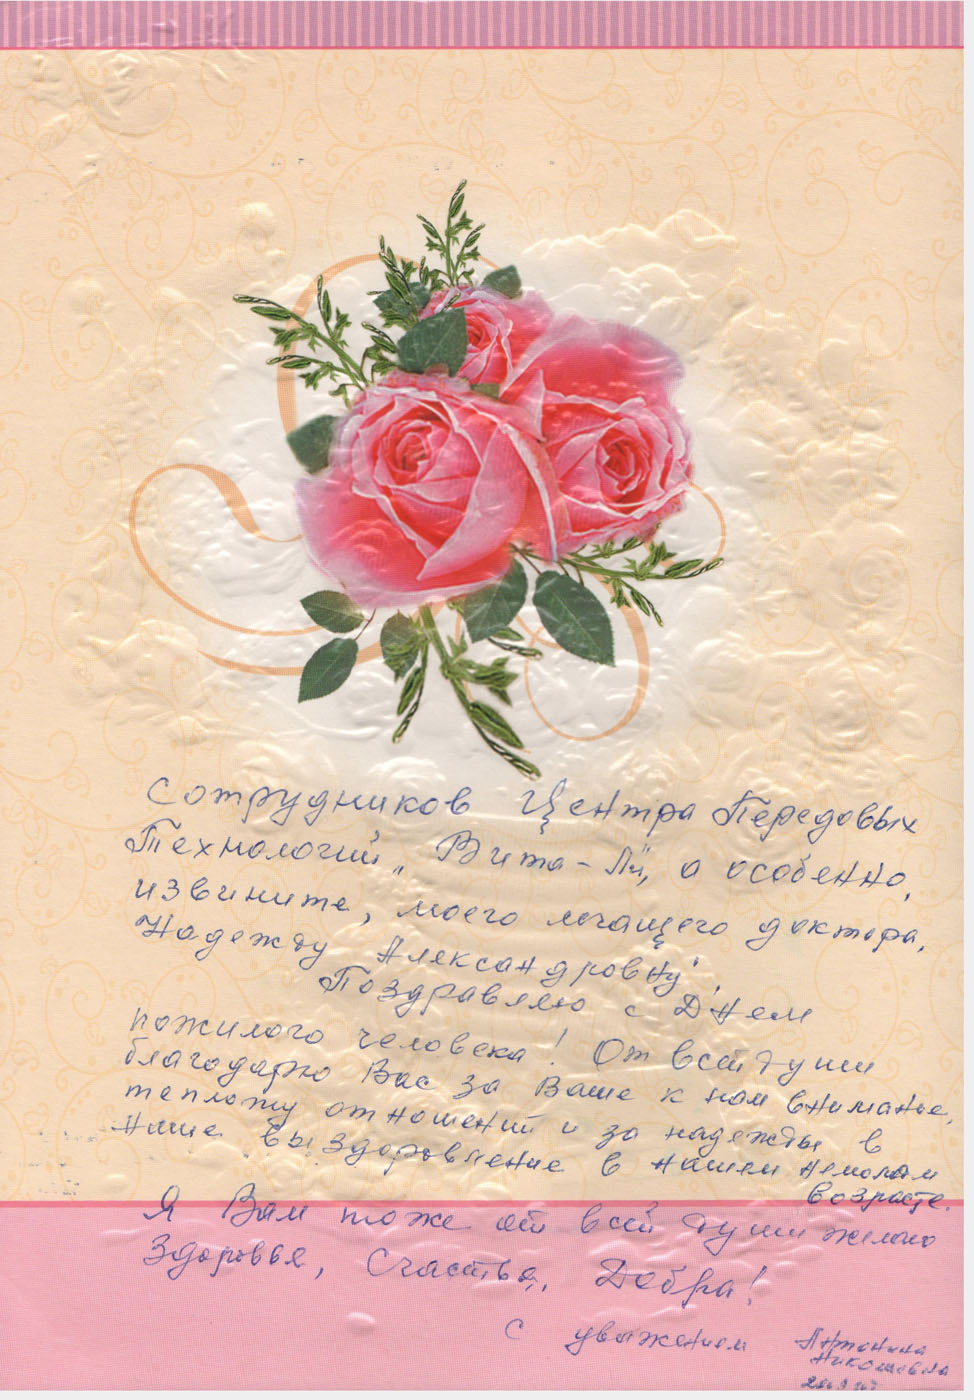 Сотрудников Центра Передовых
Технологий „Вита-Л", а особенно,
извините, моего лечащего доктора,
Надежду Александровну,
Поздравляю с Днем
пожилого человека! От всей души
благодарю Вас за Ваше к нам вниманье,
теплоту отношений и за надежды в
наше выздоровление в нашем немолодом
возрасте.
Я Вам тоже от всей души желаю
Здоровья, Счастья, Добра!
с уважением Антонина
Николаевна